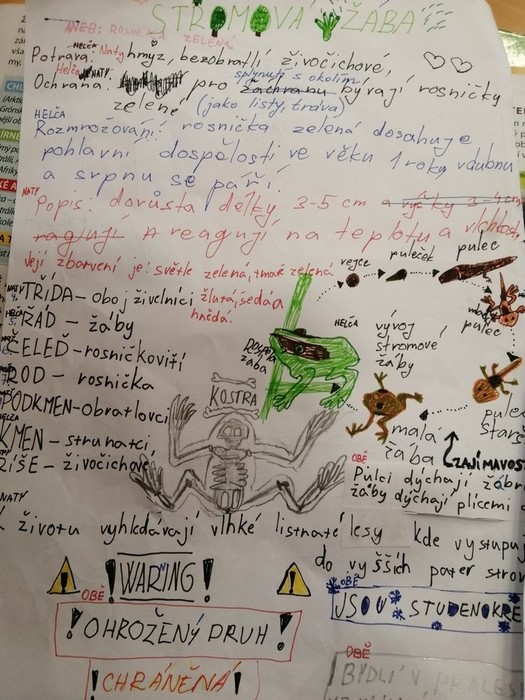 STROMOVÁ ŽABA
ANEB: ROSNIČKA ZELENÁ
HELČA Naty
Potrava: hmyz, bezobratlí živočichové,
Helča NATY splynutí s okolím
Ochrana: pro záchranu bývají rosničky
zelené (jako listy, tráva)
HELČA
Rozmrožování: rosnička zelená dosahuje
pohlavní dospělosti ve věku 1 roky v dubnu
a srpnu se páří.
NATY
Popis: dorůsta délky 3-5 cm a výšky 3-4cm
ragují reagují na teplotu a vlhkost,
Její zbarvení je: světle zelená, tmavě zelená
žlutá, šedá a
hnědá.
NATY TŘÍDA - obojživelníci
HELČA ŘÁD - žáby
ČELEĎ - rosničkovití
ROD - rosnička
PODKMEN - obratlovci
KMEN - strunatci
ŘÍŠE - živočichové
vejce
puleček
pulec
pulec
pulec
starší
malá
žába
DOSPĚLÁ
žaba
HELČA
vývoj
stromové
žáby
KOSTRA
ZAJÍMAVOST
OBĚ
Pulci dýchají žábr
žáby dýchají plícemi a
NATY
K životu vyhledávají vlhké listnaté lesy kde vystupu
do vyšších pater strom
! WARING !
OBĚ
! OHROŽENÝ DRUH !
OBĚ
! CHRÁNĚNÁ !
OBĚ
JSOU STUDENOKRE
OBĚ
BÝDLÍ V